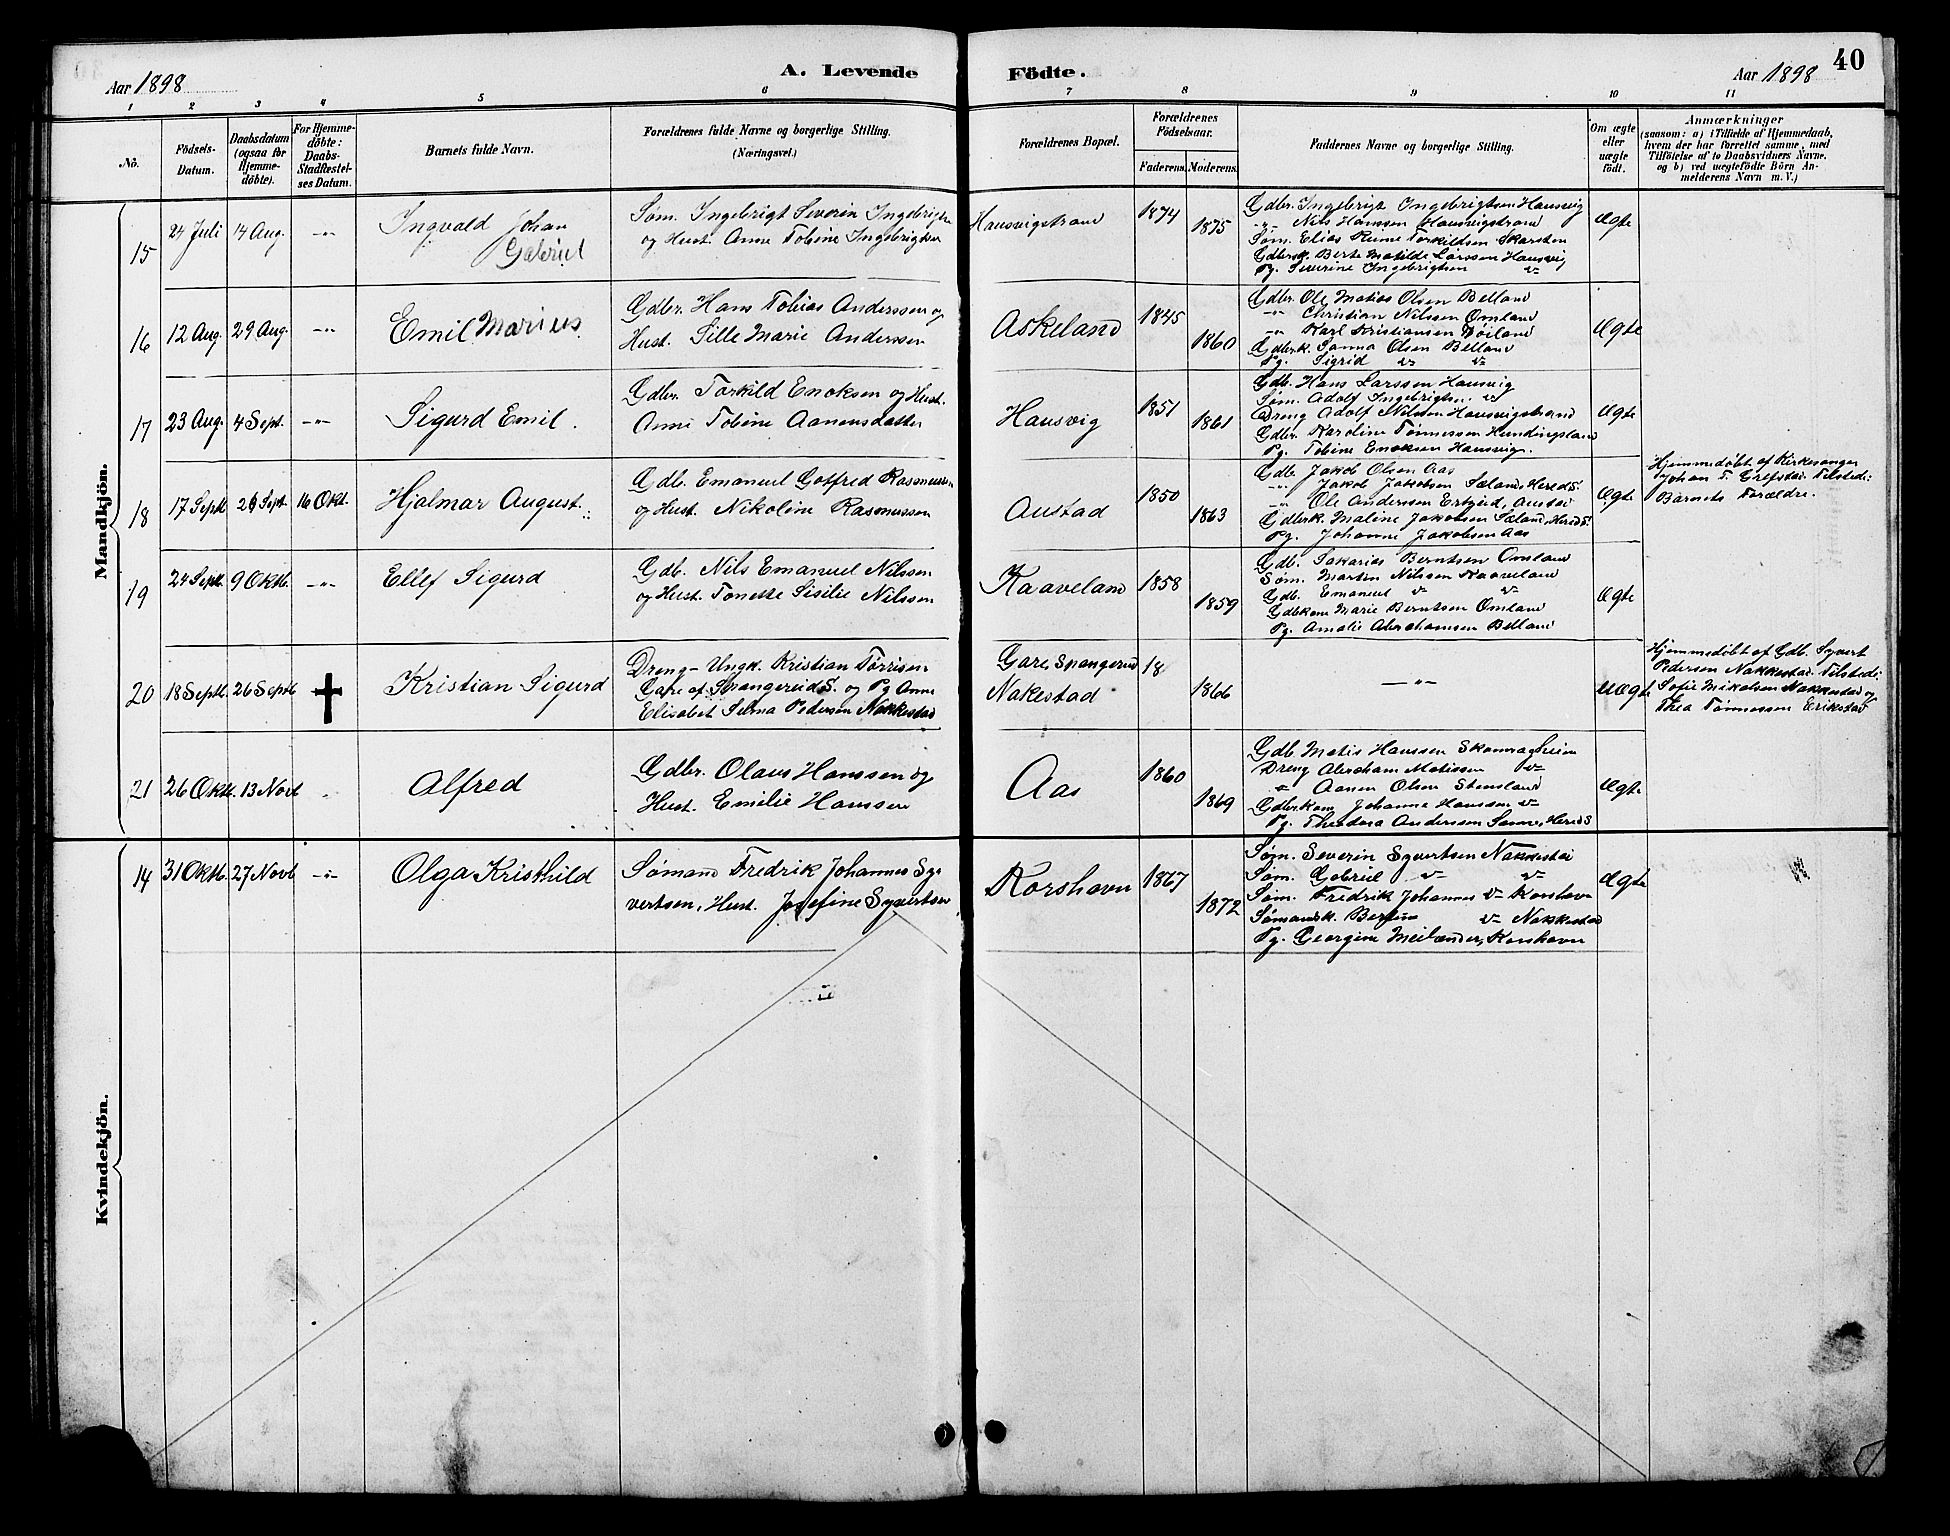 Aar 1898
A. Levende
Födte.
Aar 1898
40
1 2 3 4 5 6 7 8 9 10 11
No.
Födsels-
Datum.
Daabsdatum
(ogsaa for
Hjemme-
döbte).
For Hjemme-
döbte:
Daabs-
Stadfæstel-
ses Datum.
Barnets fulde Navn.
Forældrenes fulde Navne og borgerlige Stilling.
(Næringsvei.)
Forældrenes Bopæl.
Forældrenes
Födselsaar.
Faderens. Moderens.
Faddernes Navne og borgerlige Stilling.
Om ægte
eller
uægte
födt.
Anmærkninger
(saasom: a) i Tilfælde af Hjemmedaab,
hvem der har forrettet samme, med
Tilföielse af to Daabsvidners Navne,
og b) ved uægtefödte Börn An-
melderens Navn m. V.)
Mandkjön.
15
24 Juli
14 Aug.
-"-
Ingvald Johan
Gabriel
Søm. Ingebrigt Severin Ingebrigtsen
og Hust. Anne Tobine Ingebrigtsen
Hausvigstrand
1874
1875
Gdbr. Ingebrigt Ingebrigtsen Hausvig
-"- Nils Hanssen Hausvigstrand
Søm. Elias Reime Torkildsen Skarsten
Gdbrsk. Berte Matilde Larssen Hausvig
Pg. Severine Ingebrigtsen v-
Ægte
16
12 Aug.
29 Aug.
-"-
Emil Marius
Gdbr. Hans Tobias Anderssen og
Hust. Sille Marie Anderssen
Askeland
1845
1860
Gdbr. Ole Matias Olsen Belland
-"- Christian Nilssen Omland
-"- Karl Kristiansen Høiland
Gdbrk. Sanna Olsen Belland
Pg. Sigrid v- v-
Ægte
17
23 Aug.
4 Sept.
-"-
Sigurd Emil.
Gdbr. Torkild Enoksen og Hust.
Anne Tobine Aanensdatter
Hausvig
1851
1861
Gdb. Hans Larssen Hausvig
Søm. Adolf Ingebrigtsen v-
Dreng Adolf Nilssen Hausvigstrand
Gdbr. Karoline Tønnessen Hundingsland
Pg. Tobine Enoksen Hausvig
Ægte
18
17 Septb
26 Sept.
16 Okt.
Hjalmar August.
Gdb. Emanuel Gotfred Rasmussen
og Hust. Nikoline Rasmussen
Austad
1850
1863
Gdb. Jakob Olsen Aas
-"- Jakob Jakobsen Sæland, Hereds.
-"- Ole Anderssen Ertzeid, Austad
Gdbrk. Maline Jakobsen Sæland, Hereds.
Pg. Johanne Jakobsen Aas
Ægte
Hjemmedøbt af Kirkesanger
Johan T. Grefstad. Tilstede:
Barnets Forældre.
19
24 Septb.
9 Oktb.
-"-
Ellef Sigurd
Gdb. Nils Emanuel Nilssen
og Hust. Tonette Sisilie Nilssen
Kaaveland
1858
1859
Gdb. Sakarias Berntsen Omland
Søm. Martin Nilssen Kaaveland
Gdb. Emanuel v- v-
Gdbkone Marie Berntsen Omland
Pg. Amalie Abrahamsen Belland
Ægte
20
18 Septb
26 Septb
✝
Kristian Sigurd
Dreng- Ungk. Kristian Tørrisen
Gare af Spangereid S. og Pg Anne
Elisabet Selma Pedersen Nakkestad
Gare, Spangereid
Nakestad
18
1866
- " -
Uægte
Hjemmedøbt af Gdb. Syvert
Pedersen Nakkestad. Tilstede:
Sofie Mikalsen Nakkestad og
Thea Tønnessen Erikstad
21
26 Oktb.
13 Novb
Alfred
Gdbr. Olaus Hanssen og
Hust. Emilie Hanssen
Aas
1860
1869
Gdb. Matis Hanssen Skamragheim
Dreng Abraham Matissen v-
-"- Aanen Olsen Stensland
Gdbrkone Johanne Hanssen v-
Pg. Theodora Anderssen Sanne, Hereds
Ægte
Kvindekjön.
14
31 Oktb.
27 Novb
-"-
Olga Kristhild
Sømand Fredrik Johannes Sy-
vertsen, Hust. Josefine Syvertsen
Korshavn
1867
1872
Søm. Severin Syvertsen Nakkestad
Søm. Gabriel v- v-
Søm. Fredrik Johannes v- Korshavn
Sømandsk. Bertine v- Nakkestad
Pg. Georgine Meilænder, Korshavn
Ægte